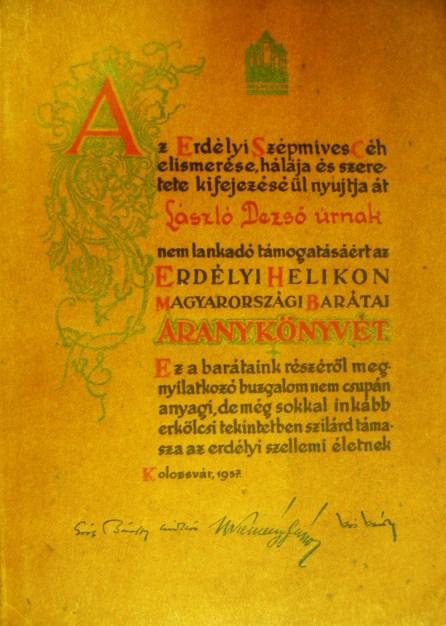 Az Erdélyi Szépmíves Céh
elismerése, hálája és szere-
tete kifejezéséül nyujtja át
László Dezső úrnak
nem lankadó támogatásáért az
ERDÉLYI HELIKON
MAGYARORSZÁGI BARÁTAI
ARANYKÖNYVÉT.
Ez a barátaink részéről meg-
nyilatkozó buzgalom nem csupán
anyagi, de még sokkal inkább
erkölcsi tekintetben szilárd táma-
sza az erdélyi szellemi életnek
Kolozsvár, 1937.